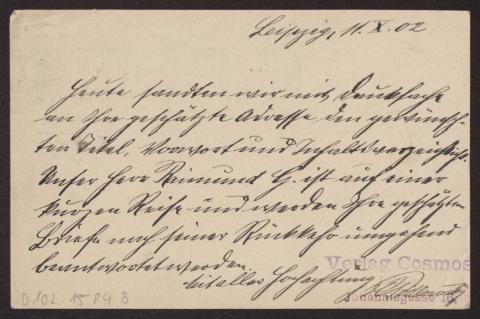 Leipzig, 11. X. 02
Heute sandten wir mit Drucksache
an Ihre geschätzte Adresse den gewünsch-
ten Titel, Vorwort und Inhaltsverzeichniß.
Unser Herr Reimund G. ist auf einer
kurzen Reise und werden Ihre geschätzten
Briefe nach seiner Rückkehr umgehend
beantwortet werden.
Mit aller Hochachtung
Verlag Cosmos
Johannisgasse 16.
D 102-1584 B